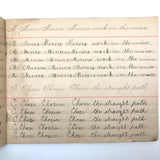 M Mines Miners Miners work in the mines
M Mines Miners Miners work in the mines
M Mines Miners Miners work in the mines
M Mines Miners Miners work in the mines
M Mines Miners Miners work in the mines
C Chose Chosen Chose the straight path
C Chose Chosen Chose the straight path
C Chose Chosen Chose the straight path
C Chose Chosen Chose the straight path
C Chose Chosen Chose the straight path
C Chose Chosen Chose the straight path